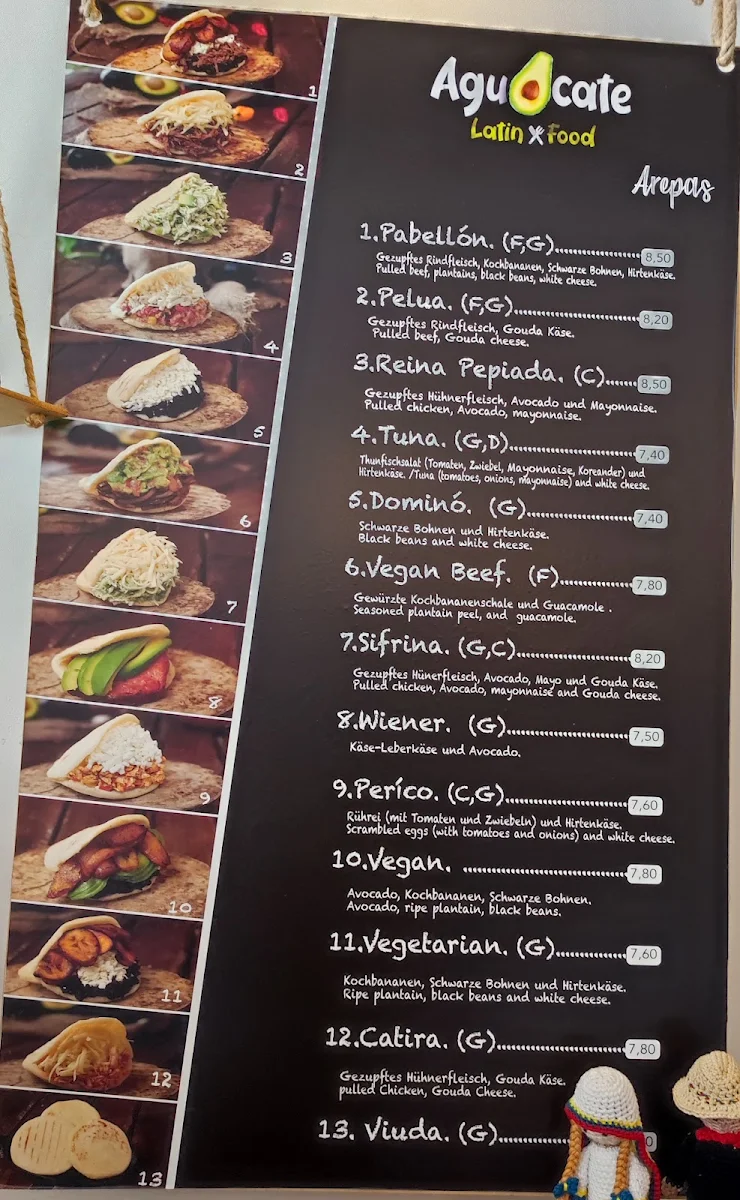 Aguacate
Latin Food
Arepas
1.Pabellón. (F,G) 8,50
Gezupftes Rindfleisch, Kochbananen, Schwarze Bohnen, Hirtenkäse.
Pulled beef, plantains, black beans, white cheese.
2.Pelua. (F,G) 8,20
Gezupftes Rindfleisch, Gouda Käse.
Pulled beef, Gouda cheese.
3.Reina Pepiada. (C) 8,50
Gezupftes Hühnerfleisch, Avocado und Mayonnaise.
Pulled chicken, Avocado, mayonnaise.
4.Tuna. (G,D) 7,40
Thunfischsalat (Tomaten, Zwiebel, Mayonnaise, Koreander) und
Hirtenkäse. /Tuna (tomatoes, onions, mayonnaise) and white cheese.
5.Dominó. (G) 7,40
Schwarze Bohnen und Hirtenkäse.
Black beans and white cheese.
6.Vegan Beef. (F) 7,80
Gewürzte Kochbananenschale und Guacamole .
Seasoned plantain peel, and guacamole.
7.Sifrina. (G,C) 8,20
Gezupftes Hünerfleisch, Avocado, Mayo und Gouda Käse.
Pulled chicken, Avocado, mayonnaise and Gouda cheese.
8.Wiener. (G) 7,50
Käse-Leberkäse und Avocado.
9.Períco. (C,G) 7,60
Rührei (mit Tomaten und Zwiebeln) und Hirtenkäse.
Scrambled eggs (with tomatoes and onions) and white cheese.
10.Vegan. 7,80
Avocado, Kochbananen, Schwarze Bohnen.
Avocado, ripe plantain, black beans.
11.Vegetarian. (G) 7,60
Kochbananen, Schwarze Bohnen und Hirtenkäse.
Ripe plantain, black beans and white cheese.
12.Catira. (G) 7,80
Gezupftes Hühnerfleisch, Gouda Käse.
pulled Chicken, Gouda Cheese.
13. Viuda. (G)
1
2
3
4
5
6
7
8
9
10
11
12
13